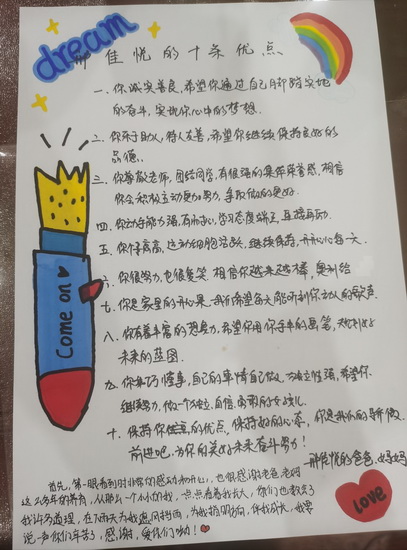 dream
佳悦的十条优点
一、你诚实善良,希望你通过自己脚踏实地
的奋斗,实现你心中的梦想.
二、你乐于助人,待人友善,希望你继续保持良好的
品德、
三、你尊敬老师,团结同学,有很强的集体荣誉感,相信
你会积极主动更加努力,争取做的更好.
四、你动手能力强,有耐心,学习态度端正,再接再厉.
五、你个子高高,运动细胞活跃,继续保持,开开心心每一天.
六、你很努力,也很爱笑 相信你越来越棒,奥利给
七、你是家里的开心果,我们希望每天能听到你动人的歌声.
八、你有着丰富的想象力,希望你用你手中的画笔,规划好
未来的蓝图.
九、你乖巧懂事,自己的事情自己做,独立性强,希望你
继续努力,做一个独立,自信,勇敢的女孩儿
十、保持你优点,保持好的心态,你是我们的骄傲
前进吧,为你的美好未来奋斗努力!
佳悦的爸爸、妈妈
Come on
首先,第一眼看到时非常的感动和开心,也很感谢老爸老妈
这么多年的养育,从那么一个小小的我,一点点看着我长大,你们也教会了
我许多道理,在下雨天为我遮风挡雨,为我指明方向,伴我成长,我想
说一声你们辛苦了,感谢,爱你们呦!
love